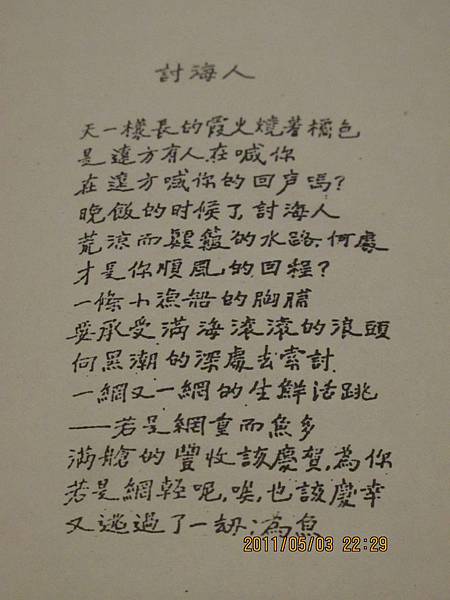 討海人
天一樣長的霞火燒著橘色
是遠方有人在喊你
在遠方喊你的回声嗎?
晚飯的时候了,討海人
荒涼而顛簸的水路,何處
才是你順風的回程?
一條小漁船的胸
要承受滿海滾滾的浪頭
向黑潮的深處去索討
一網又一網的生鮮活跳
——若是網重而魚多
滿艙的豐收該慶賀,為你
若是網輕呢,唉,也該慶幸
又逃過了一劫:為魚
2011/05/03 22:29